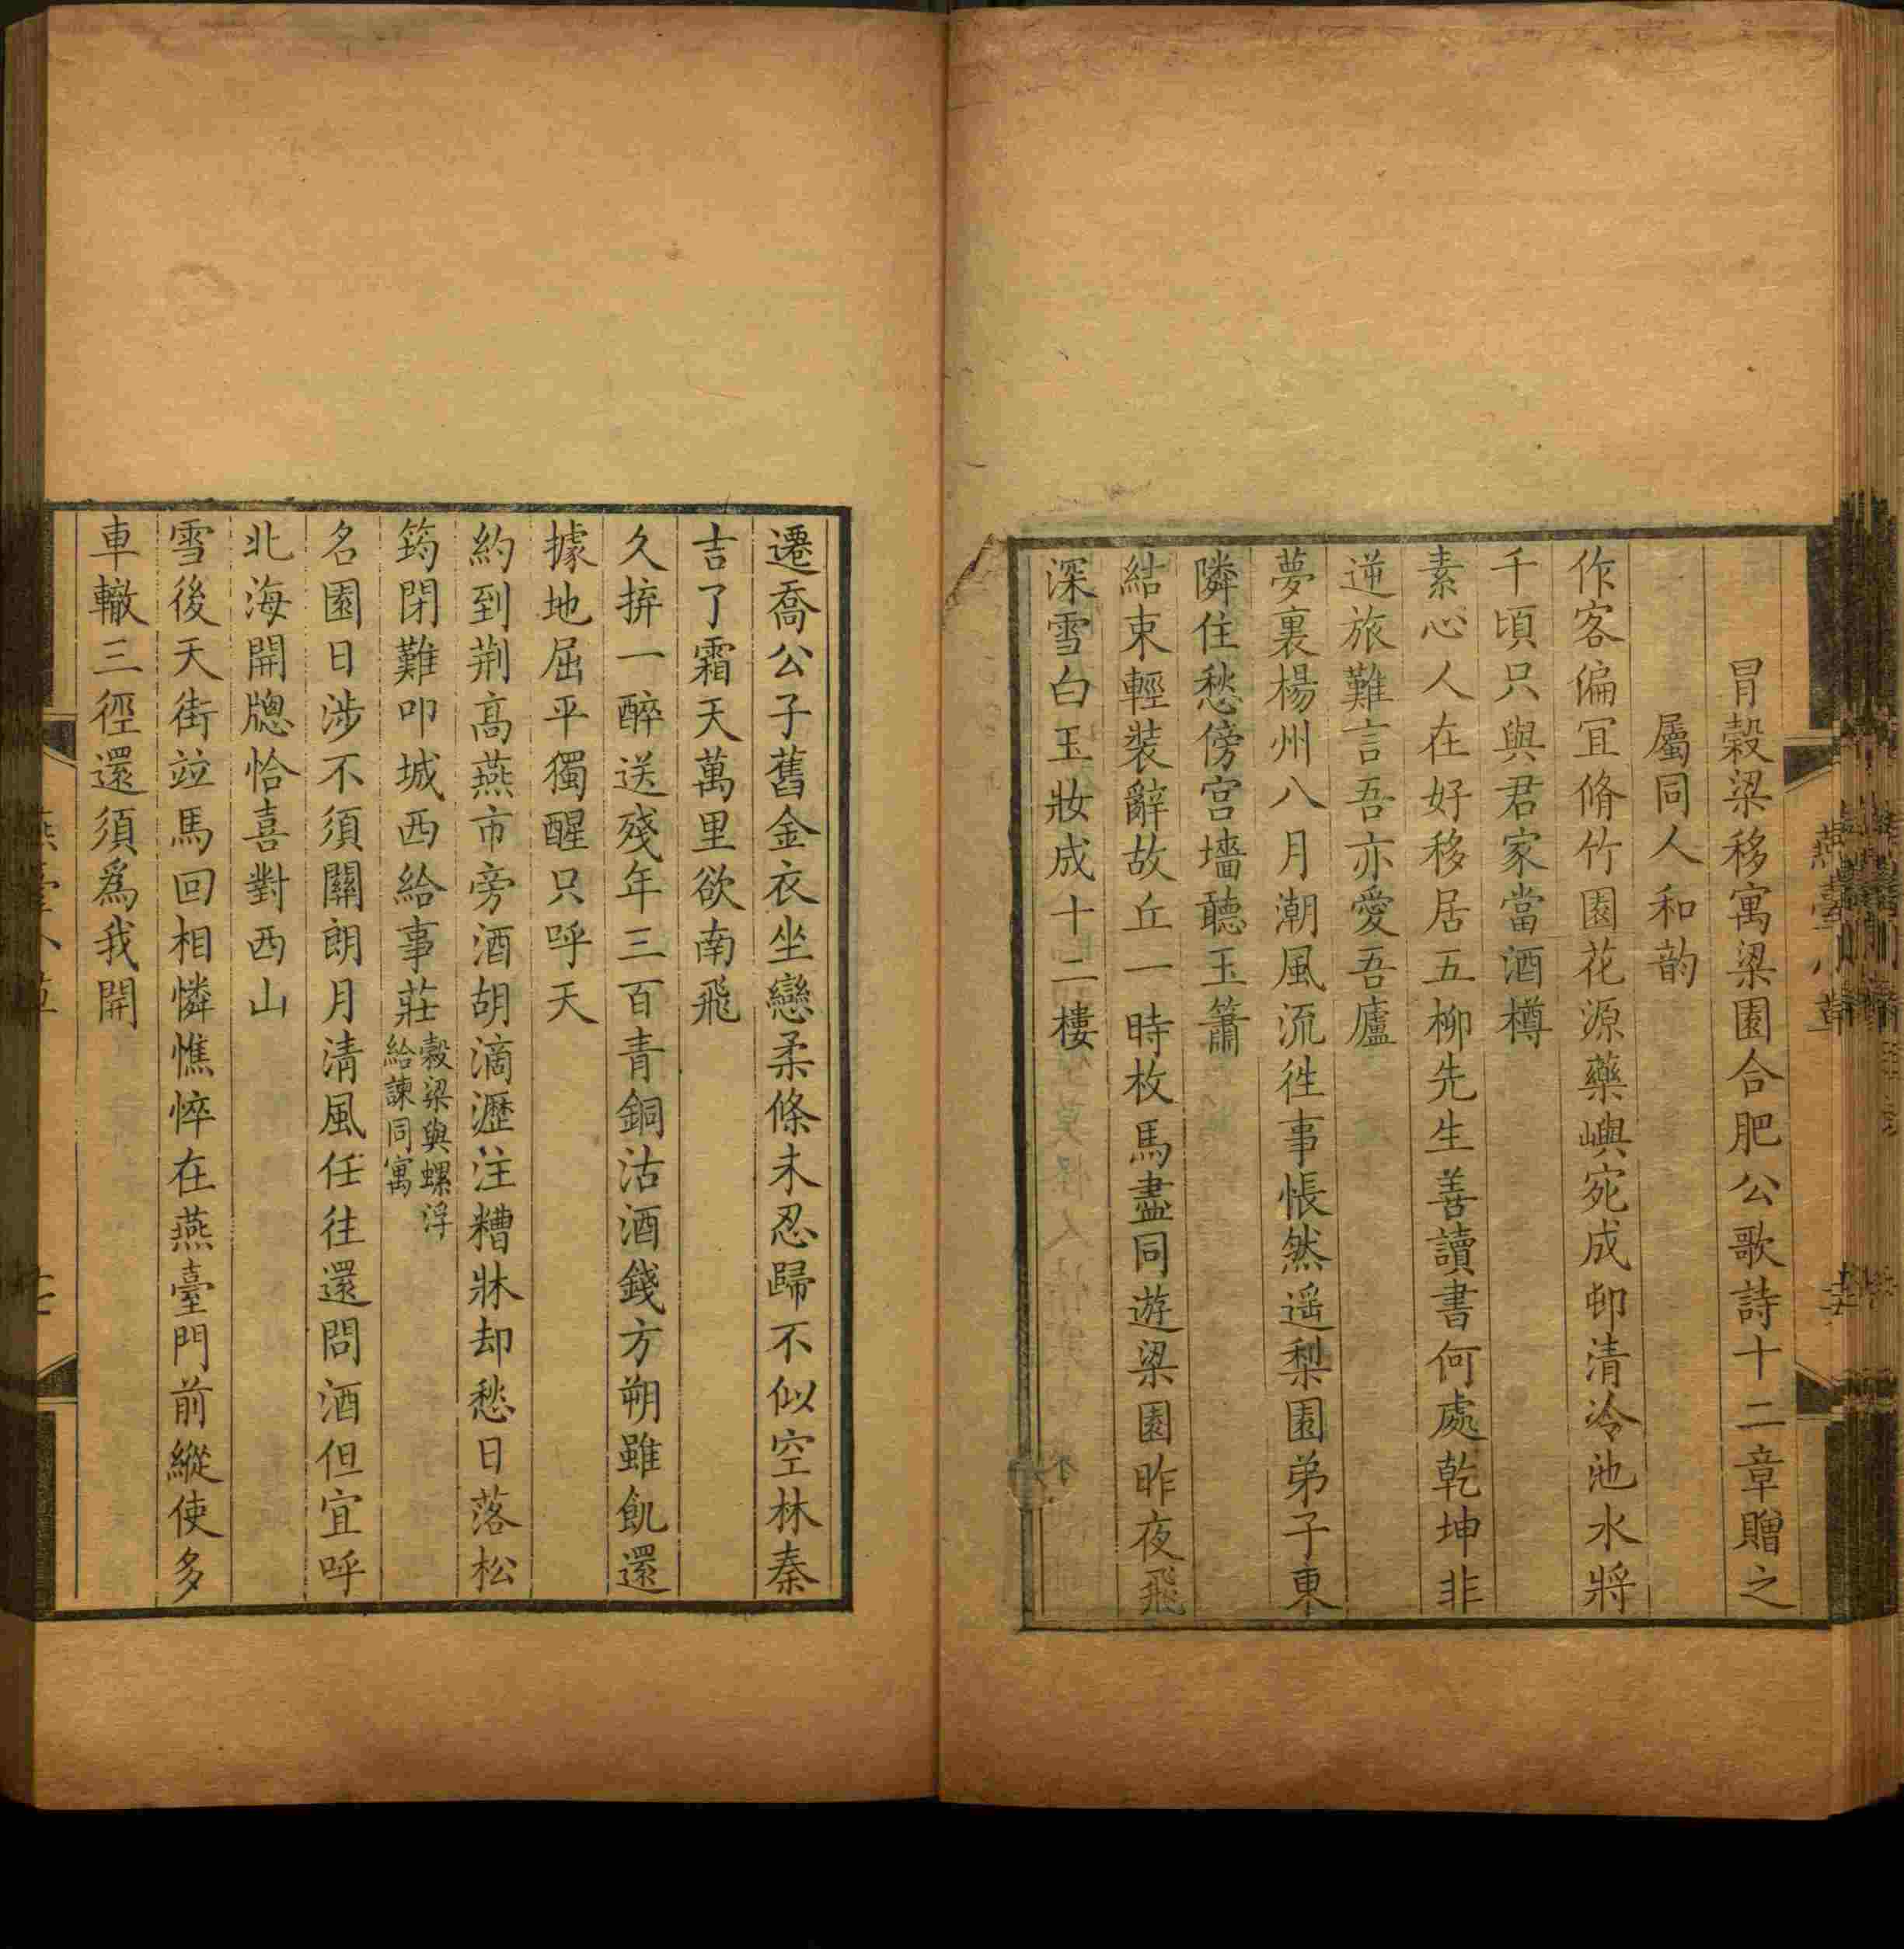 冐穀梁移寓梁園合肥公歌詩十二章贈之
屬同人和韵
作客偏冝脩竹園花源藥嶼宛成邨清冷池水將
千頃只與君家當酒樽
素心人在好移居五柳先生善讀書何處乾坤非
逆旅難言吾亦愛吾廬
夢裏楊州八月潮風流徃事悵然遥梨園弟子東
隣住愁傍宫墻聽玉簫
結束輕裝辭故丘一時枚馬盡同遊梁園昨夜飛
深雪白玉妝成十二樓
燕臺小草
遷喬公子舊金衣坐戀柔條未忍歸不似空林秦
吉了霜天萬里欲南飛
久拚一醉送殘年三百青銅沽酒錢方朔雖飢還
據地屈平獨醒只呼天
約到荆高燕市旁酒胡滴瀝注糟牀却愁日落松
筠閉難叩城西給事莊穀梁與螺浮
給諫同寓
名園日涉不須關朗月清風任往還問酒但宜呼
北海開牕恰喜對西山
雪後天街竝馬回相憐憔悴在燕臺門前縱使多
車轍三徑還須爲我開